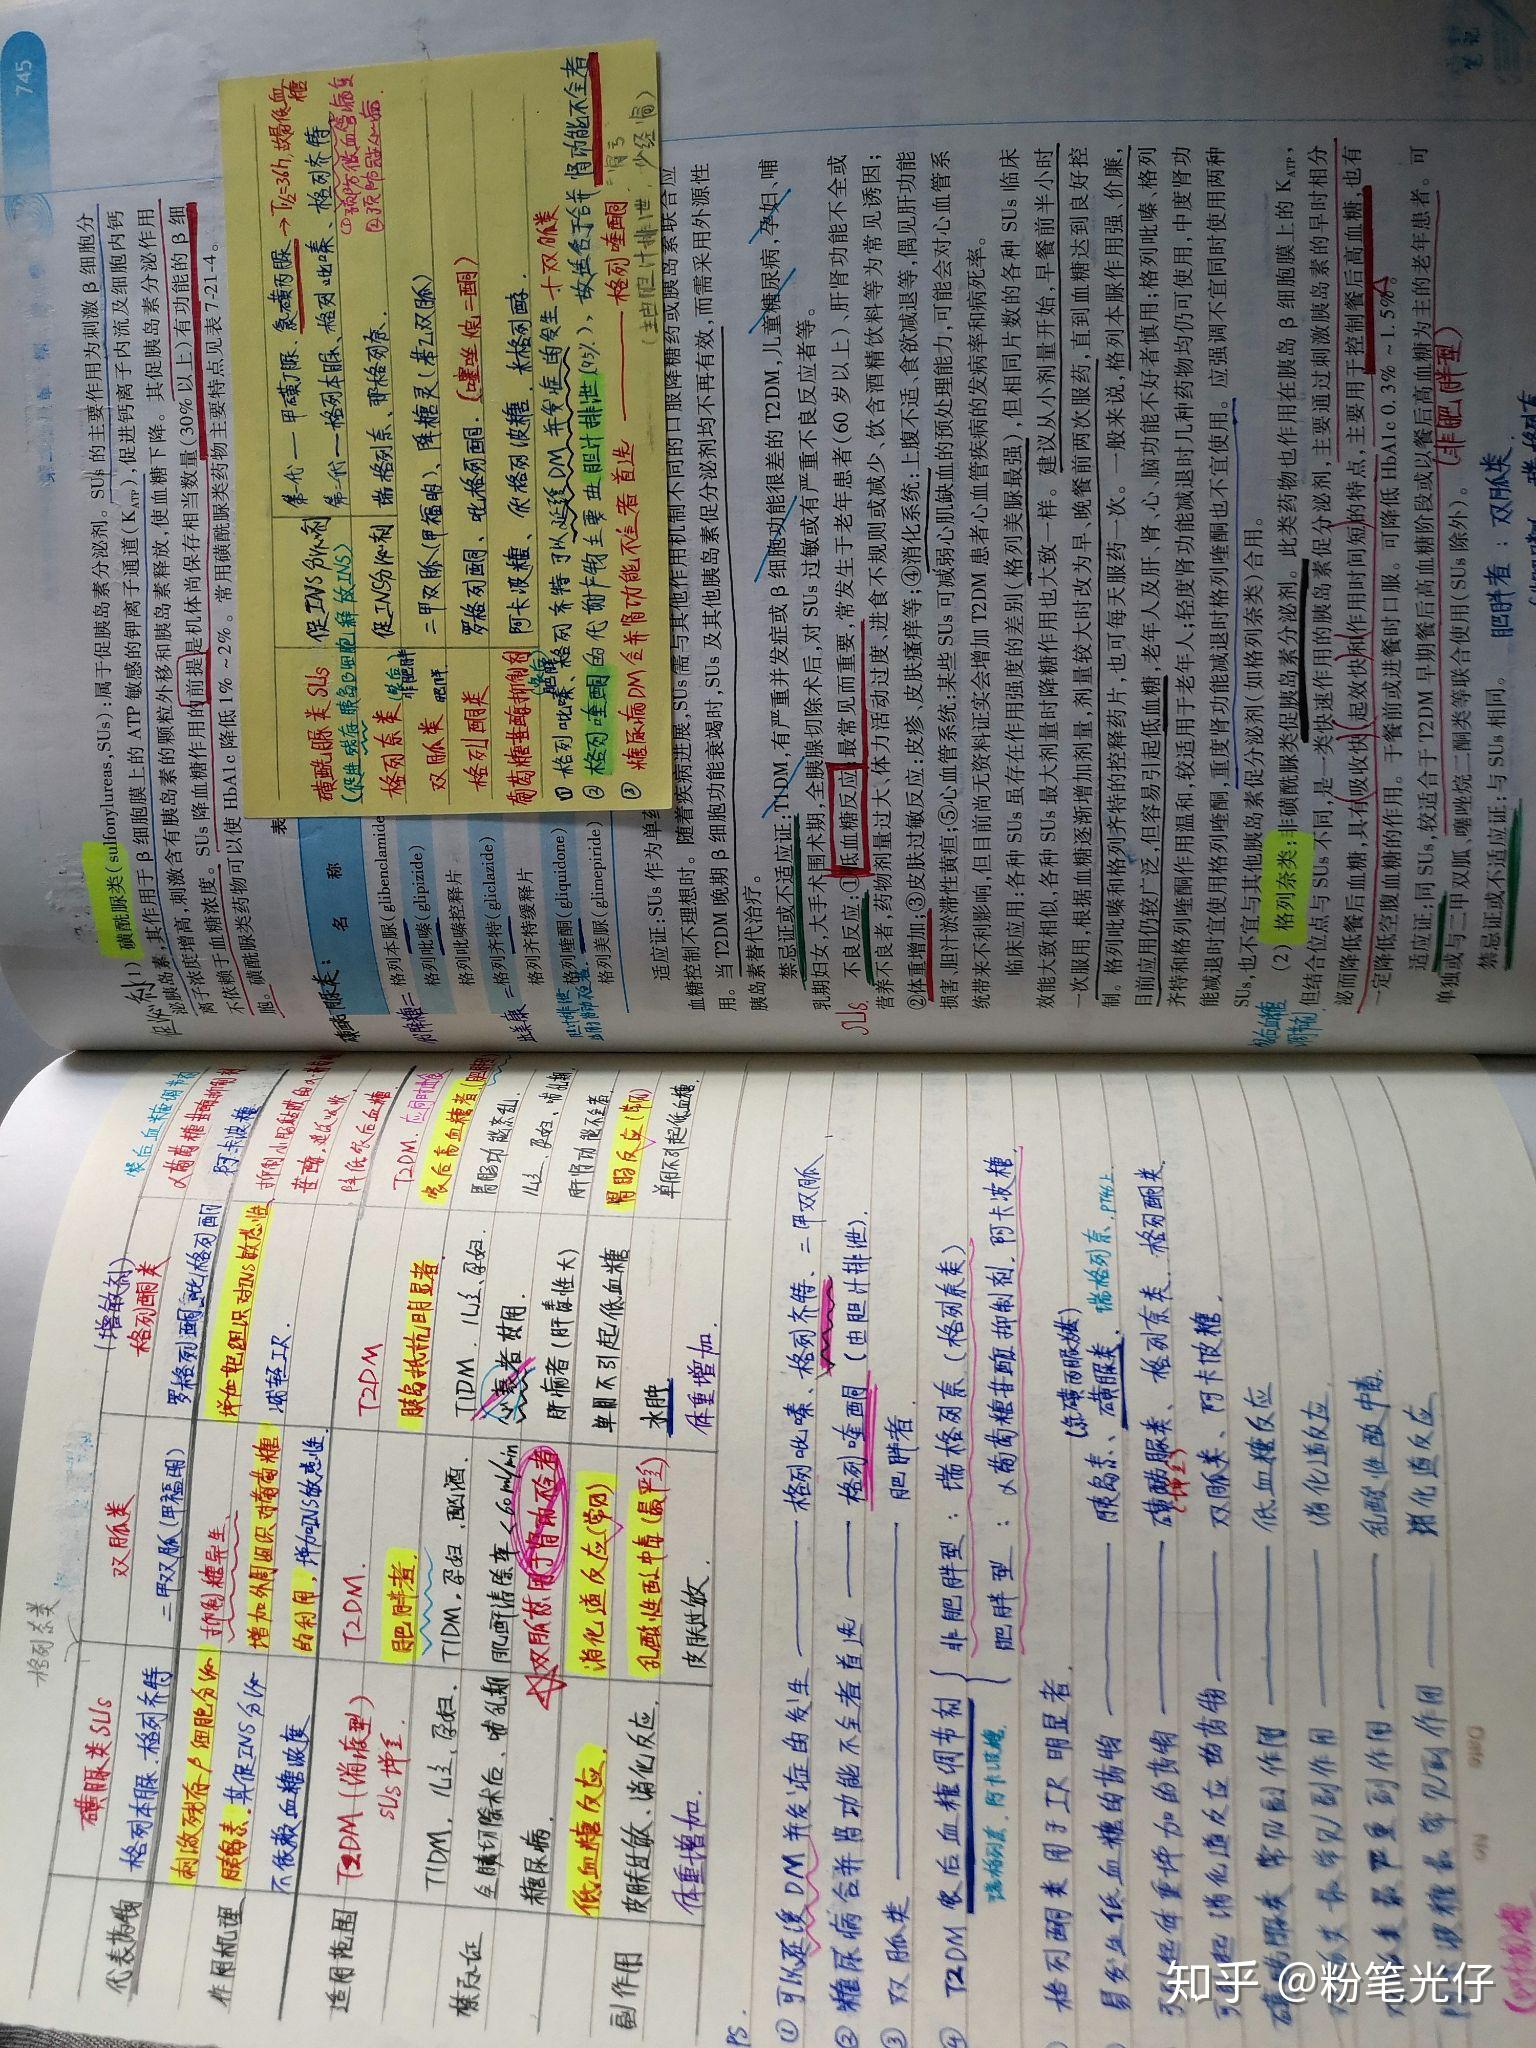 745
(1) 磺酰脲类(sulfonylureas,SUs):属于促胰岛素分泌剂。SUs的主要作用为刺激β细胞分
泌胰岛素,其作用于β细胞膜上的ATP敏感的钾离子通道(K_ATP),促进钙离子内流及细胞内钙
离子浓度增高,刺激含有胰岛素的颗粒外移和胰岛素释放,使血糖下降。其促胰岛素分泌作用
不依赖于血糖浓度。SUs降血糖作用的前提是机体尚保存相当数量(30%以上)有功能的β细
胞。磺酰脲类药物可以使HbA1c降低1%~2%。常用磺酰脲类药物主要特点见表7-21-4。
表
名 称
格列本脲(glibenclamide
格列吡嗪(glipizide)
格列吡嗪控释片
格列齐特(gliclazide)
格列齐特缓释片
格列喹酮(gliquidone)
格列美脲(glimepiride)
磺酰脲类SUs
(促进残存胰岛β细胞释放INS)
促INS分泌剂
第一代—甲磺丁脲、氯磺丙脲→T½=36h,故易低血糖
第二代—格列本脲、格列吡嗪、格列齐特
①预防微血管病变
格列奈类
促INS分泌剂
瑞格列奈、那格列奈
双胍类
肥胖
二甲双胍(甲福明)、降糖灵(苯乙双胍)
格列酮类
罗格列酮、吡格列酮.(噻唑烷二酮)
葡萄糖苷酶抑制剂
阿卡波糖、伏格列波糖、米格列醇
① 格列吡嗪、格列齐特可以延缓DM并发症的发生 + 双胍类
② 格列喹酮的代谢产物主要由胆汁排泄(95%),故适合于合并肾功能不全者
③ 糖尿病DM合并肾功能不全者首选——格列喹酮
适应证:SUs作为单药
血糖控制不理想时。随着疾病进展,SUs需与其他作用机制不同的口服降糖药或胰岛素联合应
用。当T2DM晚期β细胞功能衰竭时,SUs及其他胰岛素促分泌剂均不再有效,而需采用外源性
胰岛素替代治疗。
禁忌证或不适应证:T1DM,有严重并发症或β细胞功能很差的T2DM,儿童糖尿病,孕妇、哺
乳期妇女,大手术围术期,全胰腺切除术后,对SUs过敏或有严重不良反应者等。
不良反应:①低血糖反应:最常见而重要,常发生于老年患者(60岁以上)、肝肾功能不全或
营养不良者,药物剂量过大、体力活动过度、进食不规则或减少、饮含酒精饮料等为常见诱因;
②体重增加;③皮肤过敏反应:皮疹、皮肤瘙痒等;④消化系统:上腹不适、食欲减退等,偶见肝功能
损害、胆汁淤滞性黄疸;⑤心血管系统:某些SUs可减弱心肌缺血的预处理能力,可能会对心血管系
统带来不利影响,但目前尚无资料证实会增加T2DM患者心血管疾病的发病率和病死率。
临床应用:各种SUs虽存在作用强度的差别(格列美脲最强),但相同片数的各种SUs临床
效能大致相似,各种SUs最大剂量时降糖作用也大致一样。建议从小剂量开始,早餐前半小时
一次服用,根据血糖逐渐增加剂量,剂量较大时改为早、晚餐前两次服药,直到血糖达到良好控
制。格列吡嗪和格列齐特的控释药片,也可每天服药一次。一般来说,格列本脲作用强、价廉,
目前应用仍较广泛,但容易引起低血糖,老年人及肝、肾、心、脑功能不好者慎用;格列吡嗪、格列
齐特和格列喹酮作用温和,较适用于老年人;轻度肾功能减退时几种药物均仍可使用,中度肾功
能减退时宜使用格列喹酮,重度肾功能减退时格列喹酮也不宜使用。应强调不宜同时使用两种
SUs,也不宜与其他胰岛素促分泌剂(如格列奈类)合用。
(2) 格列奈类:非磺酰脲类促胰岛素分泌剂。此类药物也作用在胰岛β细胞膜上的K_ATP,
但结合位点与SUs不同,是一类快速作用的胰岛素促分泌剂,主要通过刺激胰岛素的早时相分
泌而降低餐后血糖,具有吸收快、起效快和作用时间短的特点,主要用于控制餐后高血糖,也有
一定降低空腹血糖的作用。于餐前或进餐时口服。可降低HbA1c 0.3%~1.5%。
适应证:同SUs,较适合于T2DM早期餐后高血糖阶段或以餐后高血糖为主的老年患者。可
单独或与二甲双胍、噻唑烷二酮类等联合使用(SUs除外)。
禁忌证或不适应证:与SUs相同。
(非肥胖型)
肥胖者:双胍类
SUs.
格列奈类
磺脲类SUs
双胍类
(增敏剂)
格列酮类
餐后血糖调节剂
α葡萄糖苷酶抑制剂
代表药物
格列本脲、格列齐特
二甲双胍(甲福明)
罗格列酮、吡格列酮
阿卡波糖
作用机理
刺激残存β细胞分泌
胰岛素.其促INS分泌
不依赖血糖浓度
抑制糖异生、
增加外周组织对葡萄糖
的利用,增加INS敏感性.
增强靶组织对INS敏感性
减轻IR.
降低餐后血糖
适用范围
T2DM(消瘦型)
SUs 胖
T2DM.
肥胖者.
T2DM
胰岛抵抗明显者
T2DM.
餐后高血糖者
禁忌证
T1DM,儿童,孕妇.
全胰切除术后、哺乳期
糖尿病.
T1DM,孕妇,酗酒.
肌酐清除率<60ml/min
双胍禁用于肾功不全者
T1DM、儿童、孕妇
心衰者禁用.
肝病者(肝毒性大)
胃肠功能紊乱.
儿童、孕妇、哺乳期
肝肾功能不全者
副作用
低血糖反应.
皮肤过敏、消化反应
体重增加.
消化道反应(常见)
乳酸性酸中毒(最严重)
皮肤过敏
单用不引起低血糖
水肿
体重增加.
胃肠反应(常见)
单用不引起低血糖.
PS.
① 可以延缓DM并发症的发生——格列吡嗪、格列齐特、二甲双胍
② 糖尿病合并肾功能不全者首选——格列喹酮(由胆汁排泄).
③ 双胍类——肥胖者.
④ T2DM餐后血糖调节剂{非肥胖型:瑞格列奈(格列奈类)
肥胖型:α葡萄糖苷酶抑制剂.阿卡波糖.
瑞格列奈、阿卡波糖.
格列酮类用于IR明显者.
易发生低血糖的药物——胰岛素、磺脲类、瑞格列奈
可引起体重增加的药物——磺脲类、格列奈类、格列酮类.
可引起消化道反应的药物——双胍类、阿卡波糖.
磺脲类常见副作用——低血糖反应
双胍类最常见副作用——消化道反应.
双胍类最严重副作用——乳酸性酸中毒.
阿卡波糖最常见副作用——消化道反应
知乎 @粉笔光仔